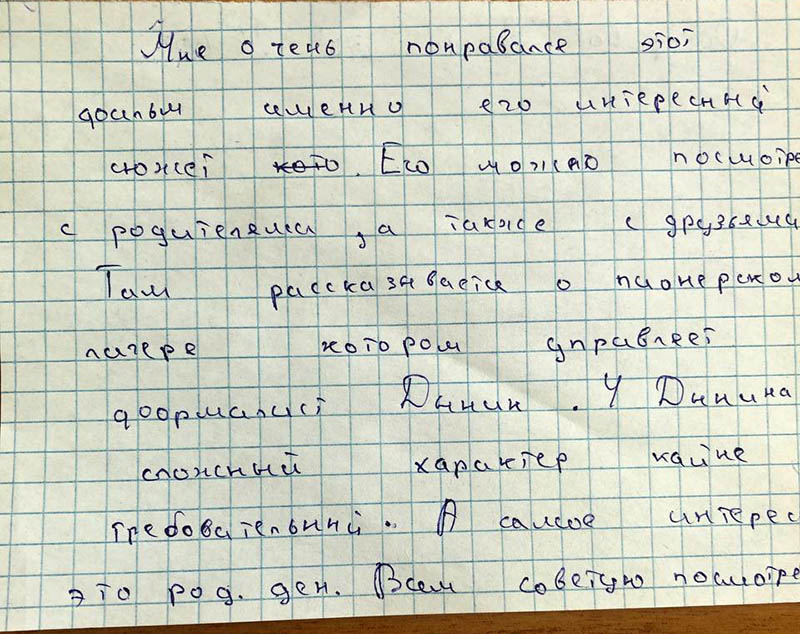 Мне очень понравался этот
фильм именно его интересный
сюжет кото. Его можно посмотре
с родителями, а также с друзьями
Там рассказывается о пионерском
лагере котором управляет
формалист Дынин. У Дынина
сложный характер кайне
требовательний. А самое интерес
это род. ден. Всем советую посмотре